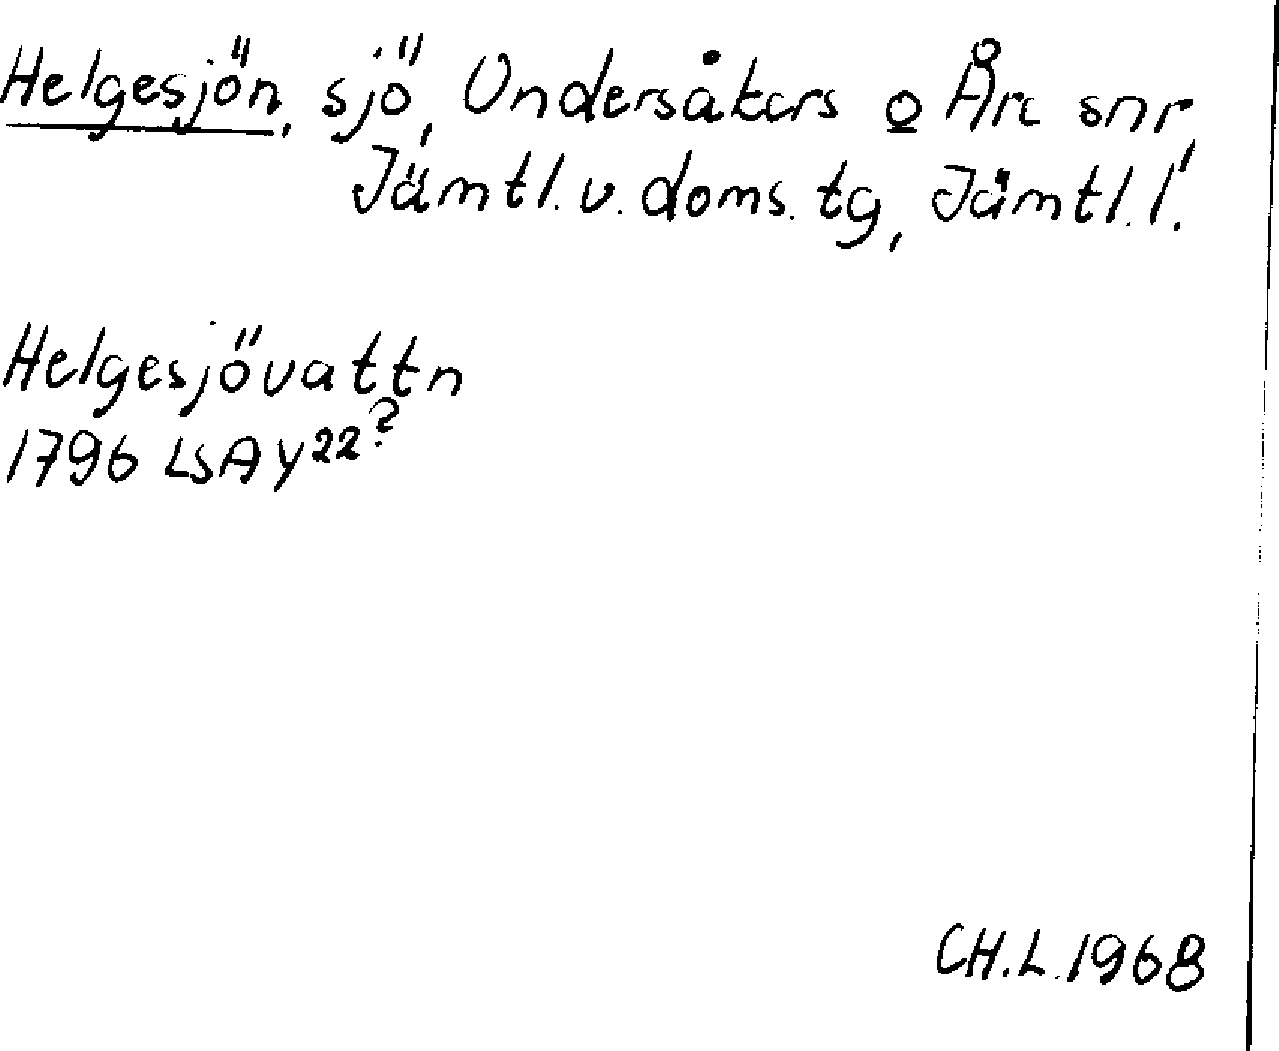 Helgesjön, sjö, Undersåkers o Åre snr,
Jämtl. v. doms. tg, Jämtl. l.
Helgesjövattn
1796 LSA Y22?
CH.L. 1968